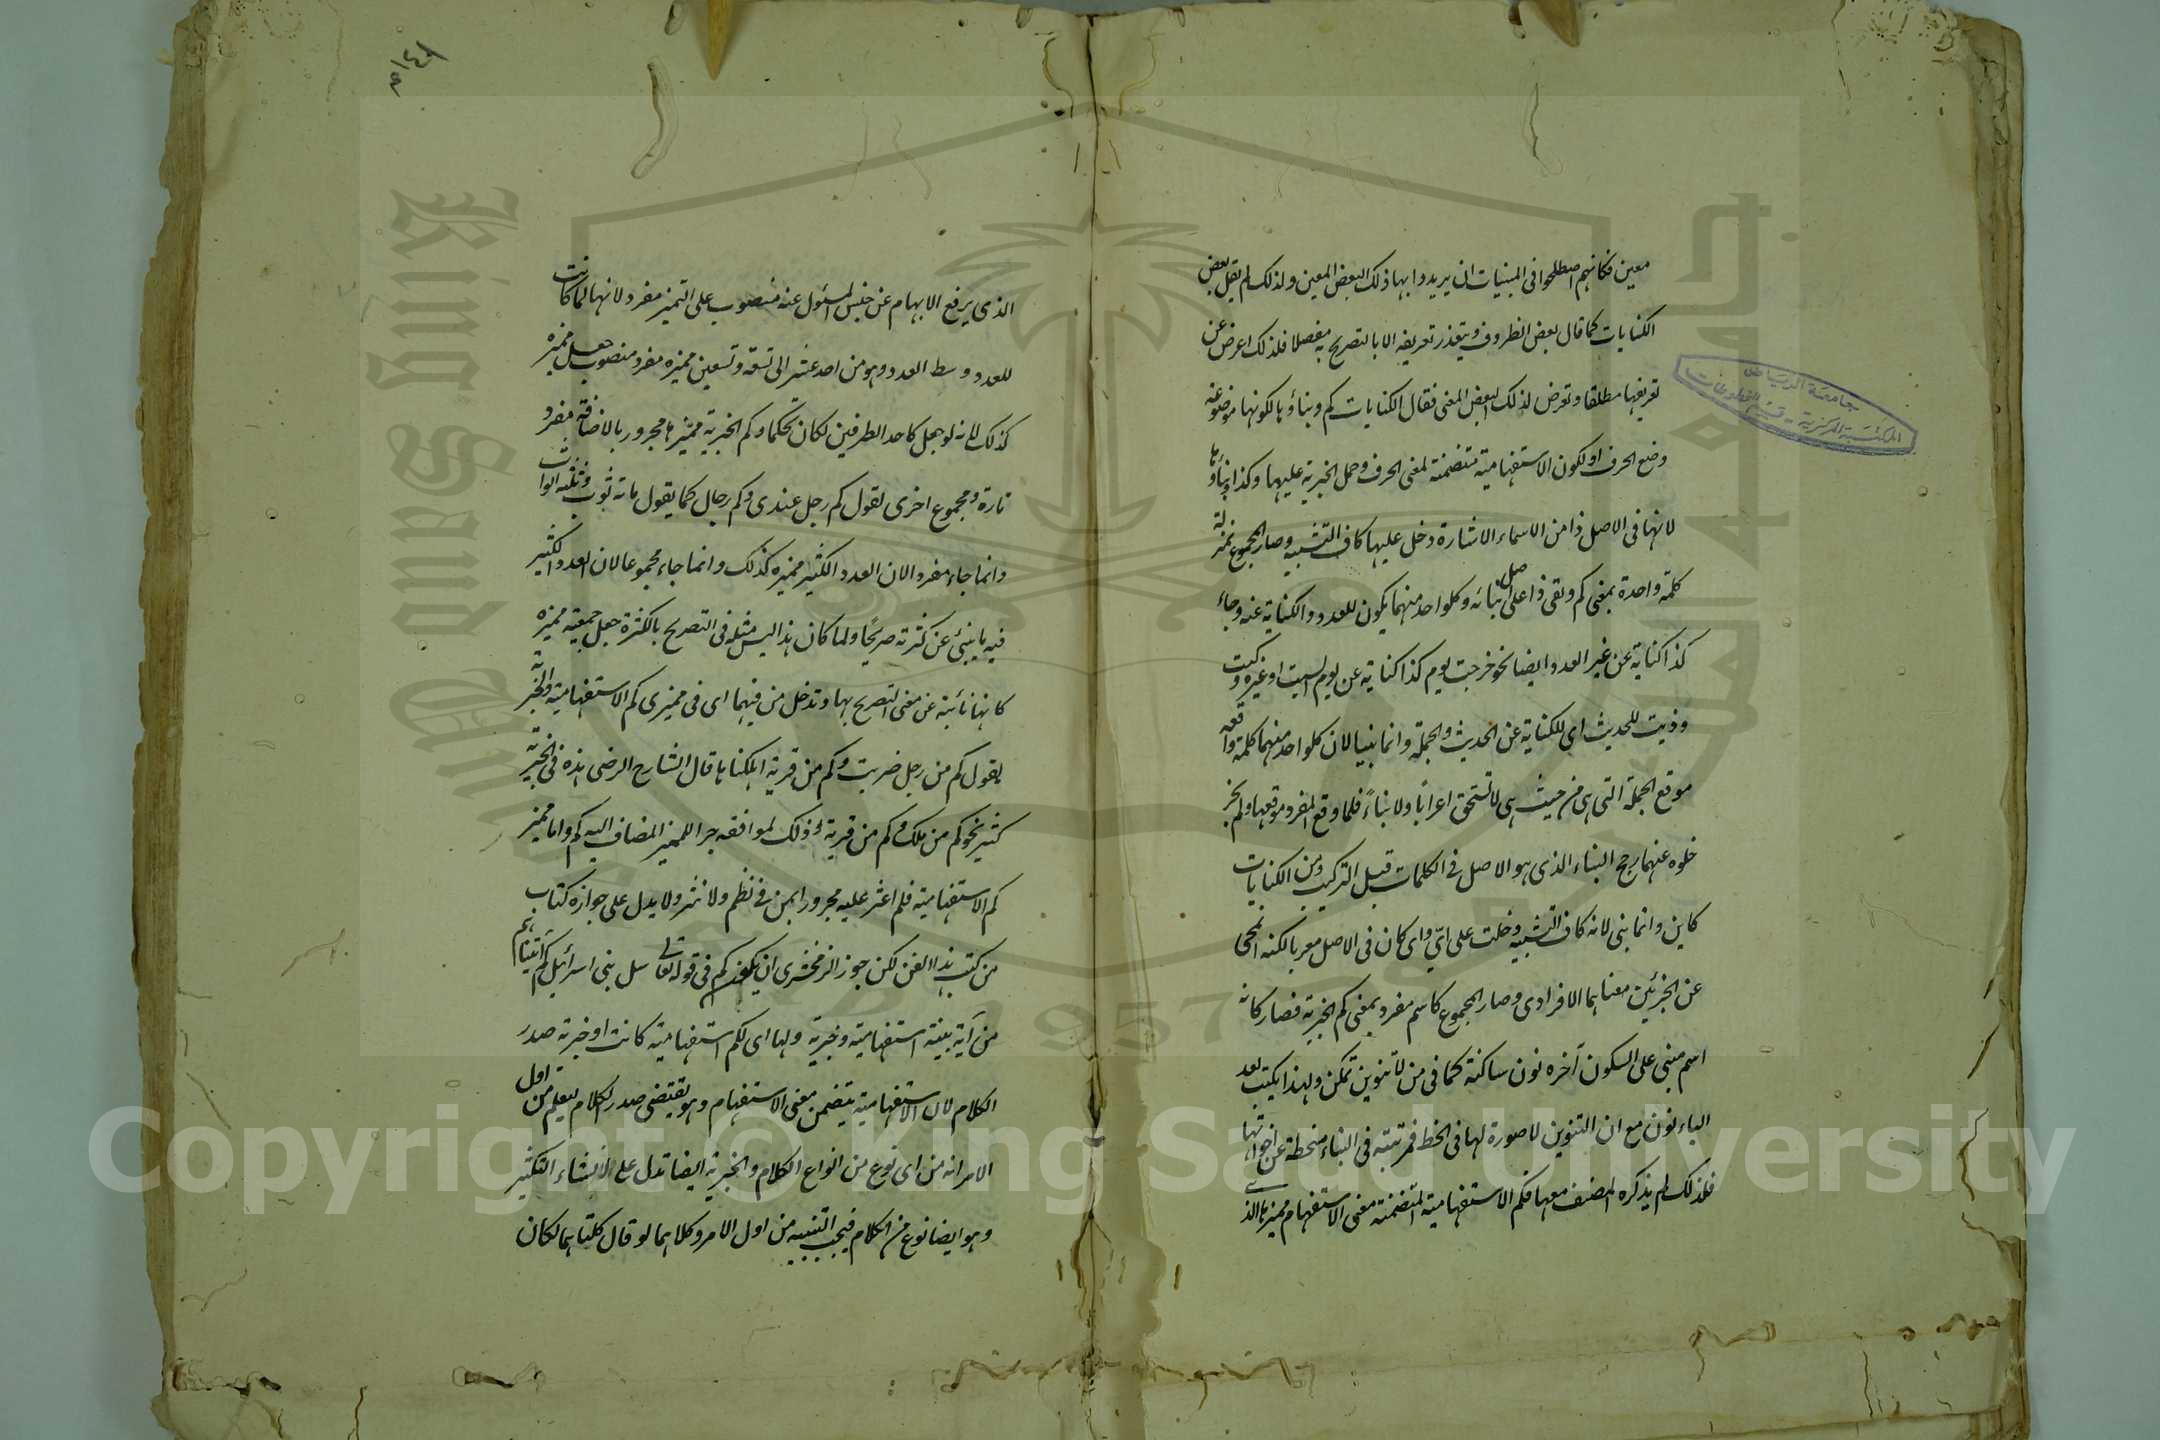 معين فكانهم اصطلحوا فى المبنيات ان يريدوا بها ذلك البعض المعين ولذلك لم يقل بعض
الكنايات كما قال بعض الظروف ويتعذر تعريفه الا بالتصريح به مفصلا فلذلك اعرض عن
تعريفها مطلقا وتعرض لذلك البعض المعنى فقال الكنايات كم وبناؤها لكونها موضوعة
وضع الحرف او لكون الاستفهامية متضمنة لمعنى الحرف وحمل الخبرية عليها وكذا وبناؤها
لانها فى الاصل ذا من الاسماء الاشارة دخل عليها كاف التشبيه وصار المجموع بمنزلة
كلمة واحدة بمعنى كم وبقى ذا على اصل بنائه وكلواحد منهما يكون للعدد والكناية عنه وجاء
كذا كناية عن غير العدد ايضا نحو خرجت يوم كذا كناية عن يوم السبت او غيره وكيت
وذيت للحديث اى للكناية عن الحديث والجملة وانما بنيا لان كلواحد منهما كلمة واقعة
موقع الجملة التى هى من حيث هى لا تستحق اعرابا ولا بناءً فلما وقع المفرد موقعها ولم يجز
خلوه عنهما رجح البناء الذى هو الاصل فى الكلمات قبل التركيب ومن الكنايات
كاين وانما بنى لانه كاف التشبيه دخلت على اىّ واى كان فى الاصل معربا لكنه انمحى
عن الجزئين معناهما الافرادى وصار المجموع كاسم مفرد بمعنى كم الخبرية فصار كانه
اسم مبنى على السكون آخره نون ساكنة كما فى من لا تنوين تمكن ولهذا يكتب بعد
الياء نون مع ان التنوين لا صورة لها فى الخط فمرتبته فى البناء منحطة عن اخواتها
فلذلك لم يذكره المصنف معها فكم الاستفهامية المتضمنة معنى الاستفهام مميزها الذى
الذى يرفع الابهام عن جنس المسئول عنه منصوب على التمييز مفرد لانها لما كانت
للعدد ووسط العدد وهو من احد عشر الى تسعة وتسعين مميزه مفرد منصوب جعل مميزه
كذلك لانه لو جعل كاحد الطرفين لكان تحكما وكم الخبرية مميزها مجرور بالاضافة مفرد
تارة ومجموع اخرى تقول كم رجل عندى وكم رجال كما يقول مائة ثوب وثلثة اثواب
وانما جاء مفردا لان العدد الكثير مميزه كذلك وانما جاء مجموعا لان العدد الكثير
فيه ما ينبئ عن كثرته صريحًا ولما كان هذا ليس مثله فى التصريح بالكثرة جعل جمعية مميزه
كانها نائبة عن معنى التصريح بها وتدخل من فيهما اى فى مميزى كم الاستفهامية والخبرية
يقول كم من رجل ضربت وكم من قرية اهلكناها قال الشارح الرضى هذه فى الخبرية
كثير نحو كم من ملك وكم من قرية وذلك لموافقه جرا للمميز المضاف اليه كم واما مميز
كم الاستفهامية فلم اعثر عليه مجرورا بمن فى نظم ولا نثر ولا يدل على جوازه كتاب
من كتب هذا الفن لكن جوز الزمخشرى ان يكون كم فى قوله تعالى سل بنى اسرائيل كم آتيناهم
من آية بينة استفهامية وخبرية ولها اى لكم استفهامية كانت او خبرية صدر
الكلام لان الاستفهامية يتضمن معنى الاستفهام وهو يقتضى صدر الكلام ليعلم من اول
الامر انه من اى نوع من انواع الكلام والخبرية ايضا تدل على انشاء التكثير
وهو ايضا نوع من الكلام فيجب التنبيه من اول الامر وكلاهما لو قال كلتاهما لكان
جامعة الرياض
المكتبة المركزية - قسم المخطوطات
King Saud University
1957
Copyright © King Saud University